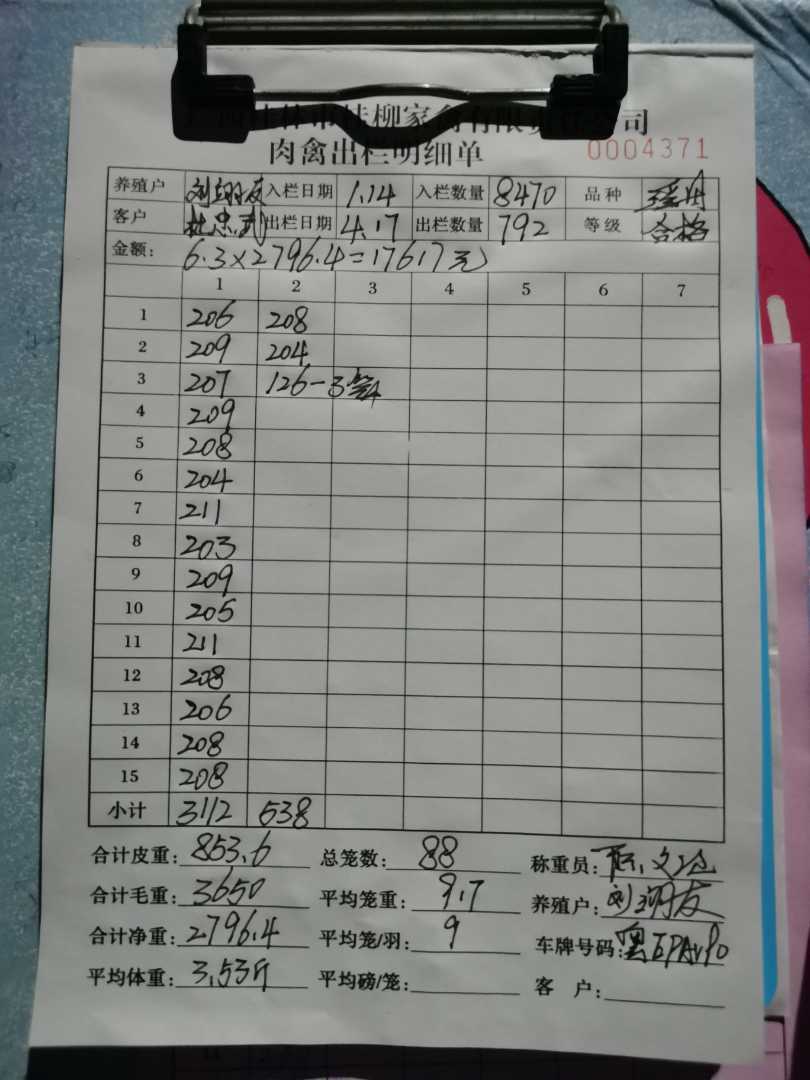 柳家禽有限责任公司
肉禽出栏明细单 0004371
养殖户 入栏日期 1.14 入栏数量 8470 品种
客户 杜忠武 出栏日期 4.17 出栏数量 792 等级 合格
金额: 6.3×2796.4=17617元
1 2 3 4 5 6 7
1 206 208
2 209 204
3 207 126-3笼
4 209
5 208
6 204
7 211
8 203
9 209
10 205
11 211
12 208
13 206
14 208
15 208
小计 3112 538
合计皮重: 853.6 总笼数: 88 称重员:
合计毛重: 3650 平均笼重: 9.7 养殖户: 刘翊友
合计净重: 2796.4 平均笼/羽: 9 车牌号码:
平均体重: 3.53斤 平均磅/笼: 客 户: